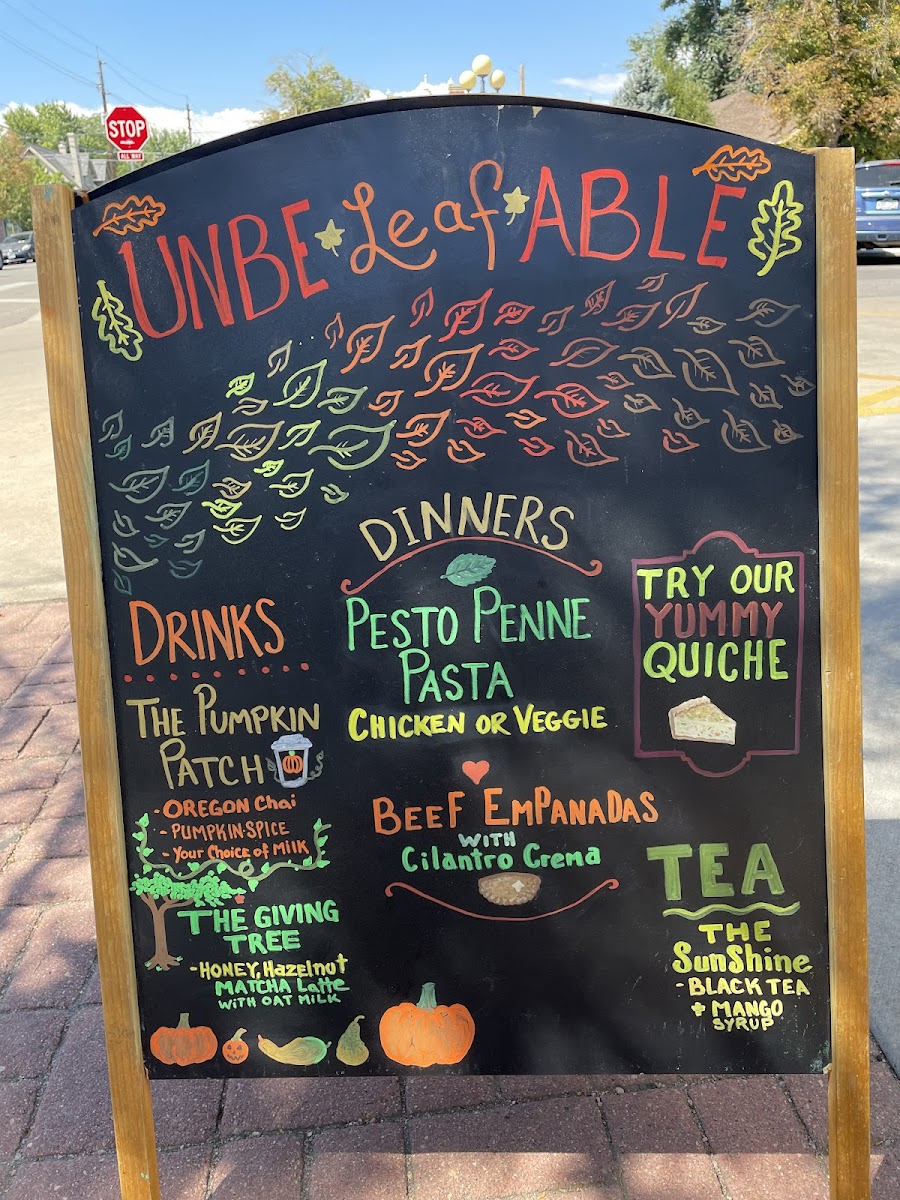 STOP
ALL WAY
UNBELeafABLE
DINNERS
PESTO PENNE
PASTA
CHICKEN OR VEGGIE
BEEF EMPANADAS
WITH
Cilantro Crema
DRINKS
THE PUMPKIN
PATCH
- OREGON Chai
- PUMPKIN SPICE
- Your Choice of MILK
THE GIVING
TREE
- HONEY, Hazelnut
MATCHA Latte
WITH OAT MILK
TRY OUR
YUMMY
QUICHE
TEA
THE
SunShine
- BLACK TEA
+ MANGO
SYRUP